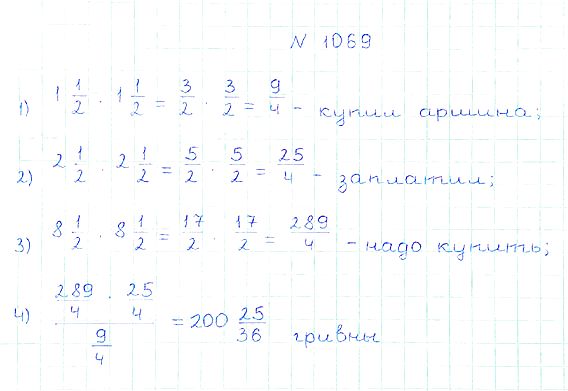 N 1069
1) 1 1/2 · 1 1/2 = 3/2 · 3/2 = 9/4 - купил аршина;
2) 2 1/2 · 2 1/2 = 5/2 · 5/2 = 25/4 - заплатил;
3) 8 1/2 · 8 1/2 = 17/2 · 17/2 = 289/4 - надо купить;
4) (289/4 · 25/4)/(9/4) = 200 25/36 гривны